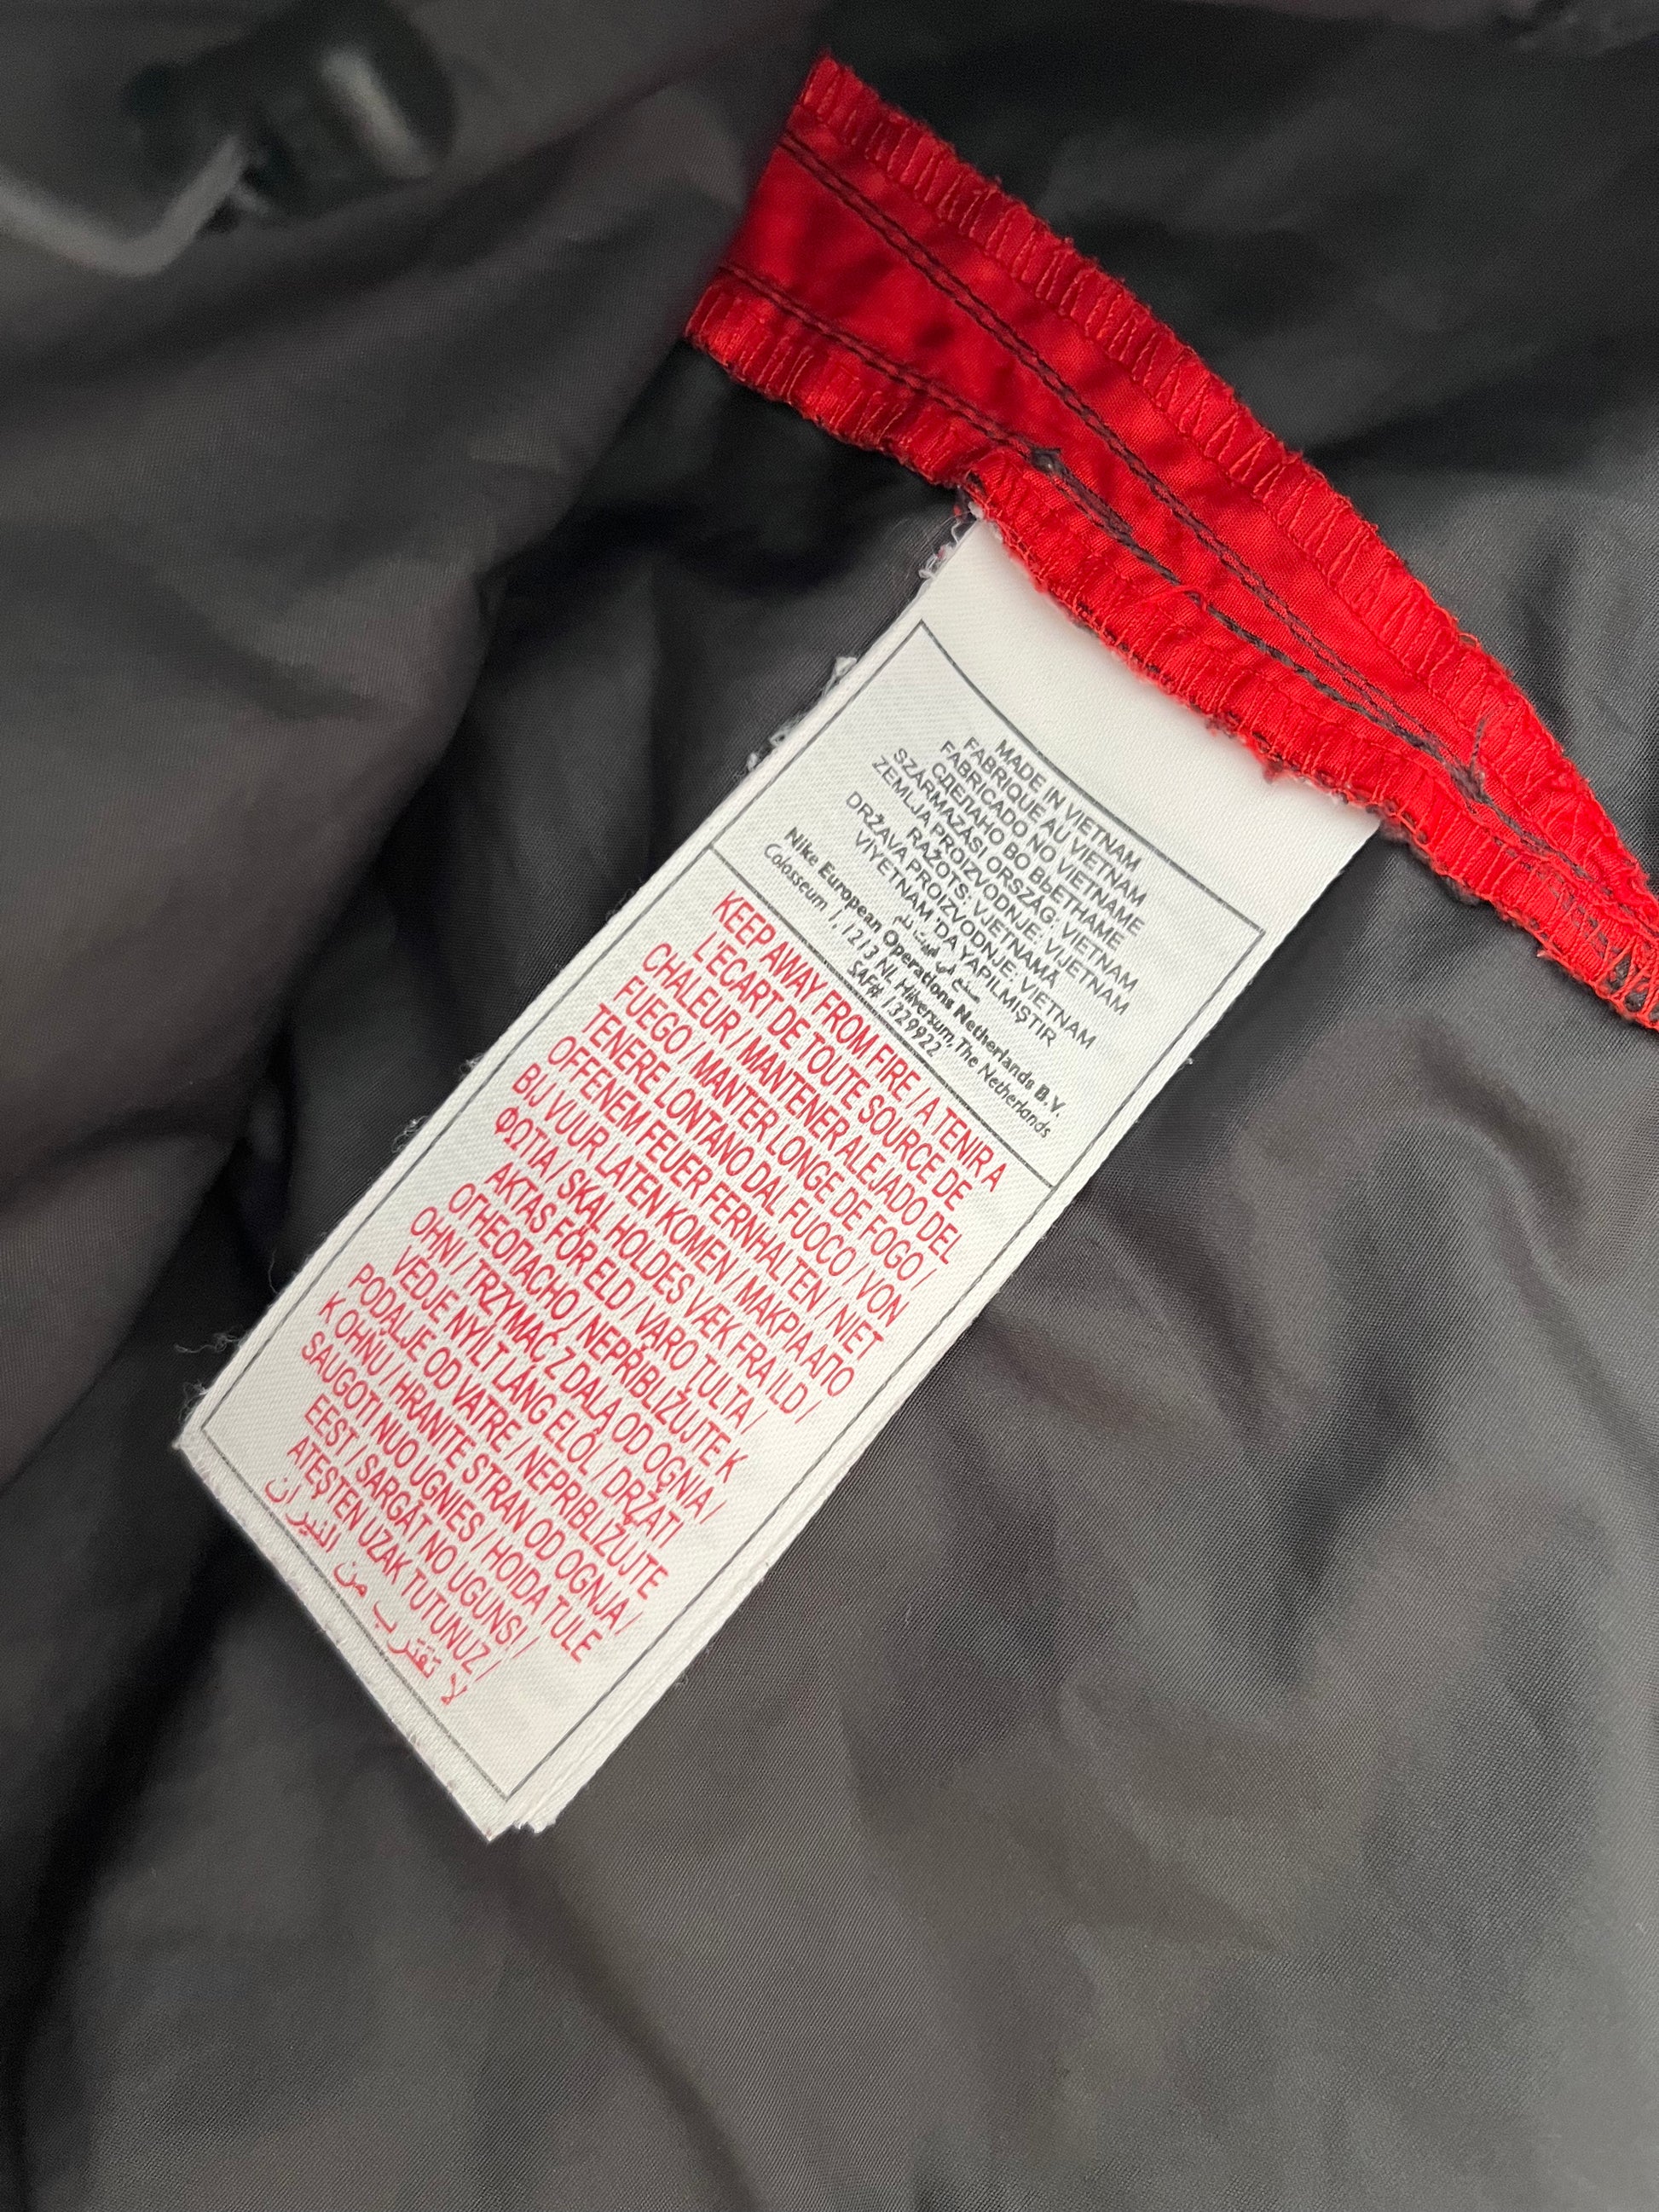 MADE IN VIETNAM
FABRIQUE AU VIETNAM
FABRICADO NO VIETNAME
СДЕЛАНО ВО ВЬЕТНАМЕ
SZÁRMAZÁSI ORSZÁG: VIETNAM
ZEMLJA PROIZVODNJE: VIJETNAM
RAŽOTS: VJETNAMĀ
DRŽAVA PROIZVODNJE: VIETNAM
VİYETNAM 'DA YAPILMIŞTIR
صنع في فيت نام
Nike European Operations Netherlands B.V.
Colosseum 1, 1213 NL Hilversum, The Netherlands
SAF# 1329922
KEEP AWAY FROM FIRE / A TENIR A
L'ECART DE TOUTE SOURCE DE
CHALEUR / MANTENER ALEJADO DEL
FUEGO / MANTER LONGE DE FOGO /
TENERE LONTANO DAL FUOCO / VON
OFFENEM FEUER FERNHALTEN / NIET
BIJ VUUR LATEN KOMEN / ΜΑΚΡΙΑ ΑΠΟ
ΦΩΤΙΑ / SKAL HOLDES VÆK FRA ILD /
AKTAS FÖR ELD / VARO TULTA /
ОГНЕОПАСНО / NEPŘIBLIŽUJTE K
OHNI / TRZYMAĆ Z DALA OD OGNIA /
VEDJE NYÍLT LÁNG ELŐL / DRŽATI
PODALJE OD VATRE / NEPRIBLIŽUJTE
K OHŇU / HRANITE STRAN OD OGNJA /
SAUGOTI NUO UGNIES / HOIDA TULE
EEST / SARGĀT NO UGUNS! /
ATEŞTEN UZAK TUTUNUZ /
لا تقترب من النيران